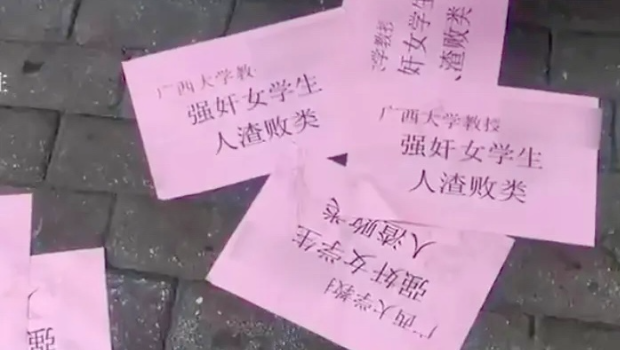 广西大学教
强奸女学生
人渣败类
大学教授
奸女学生
人渣败类
广西大学教授
强奸女学生
人渣败类
广西大学教
强奸女学生
人渣败类
强